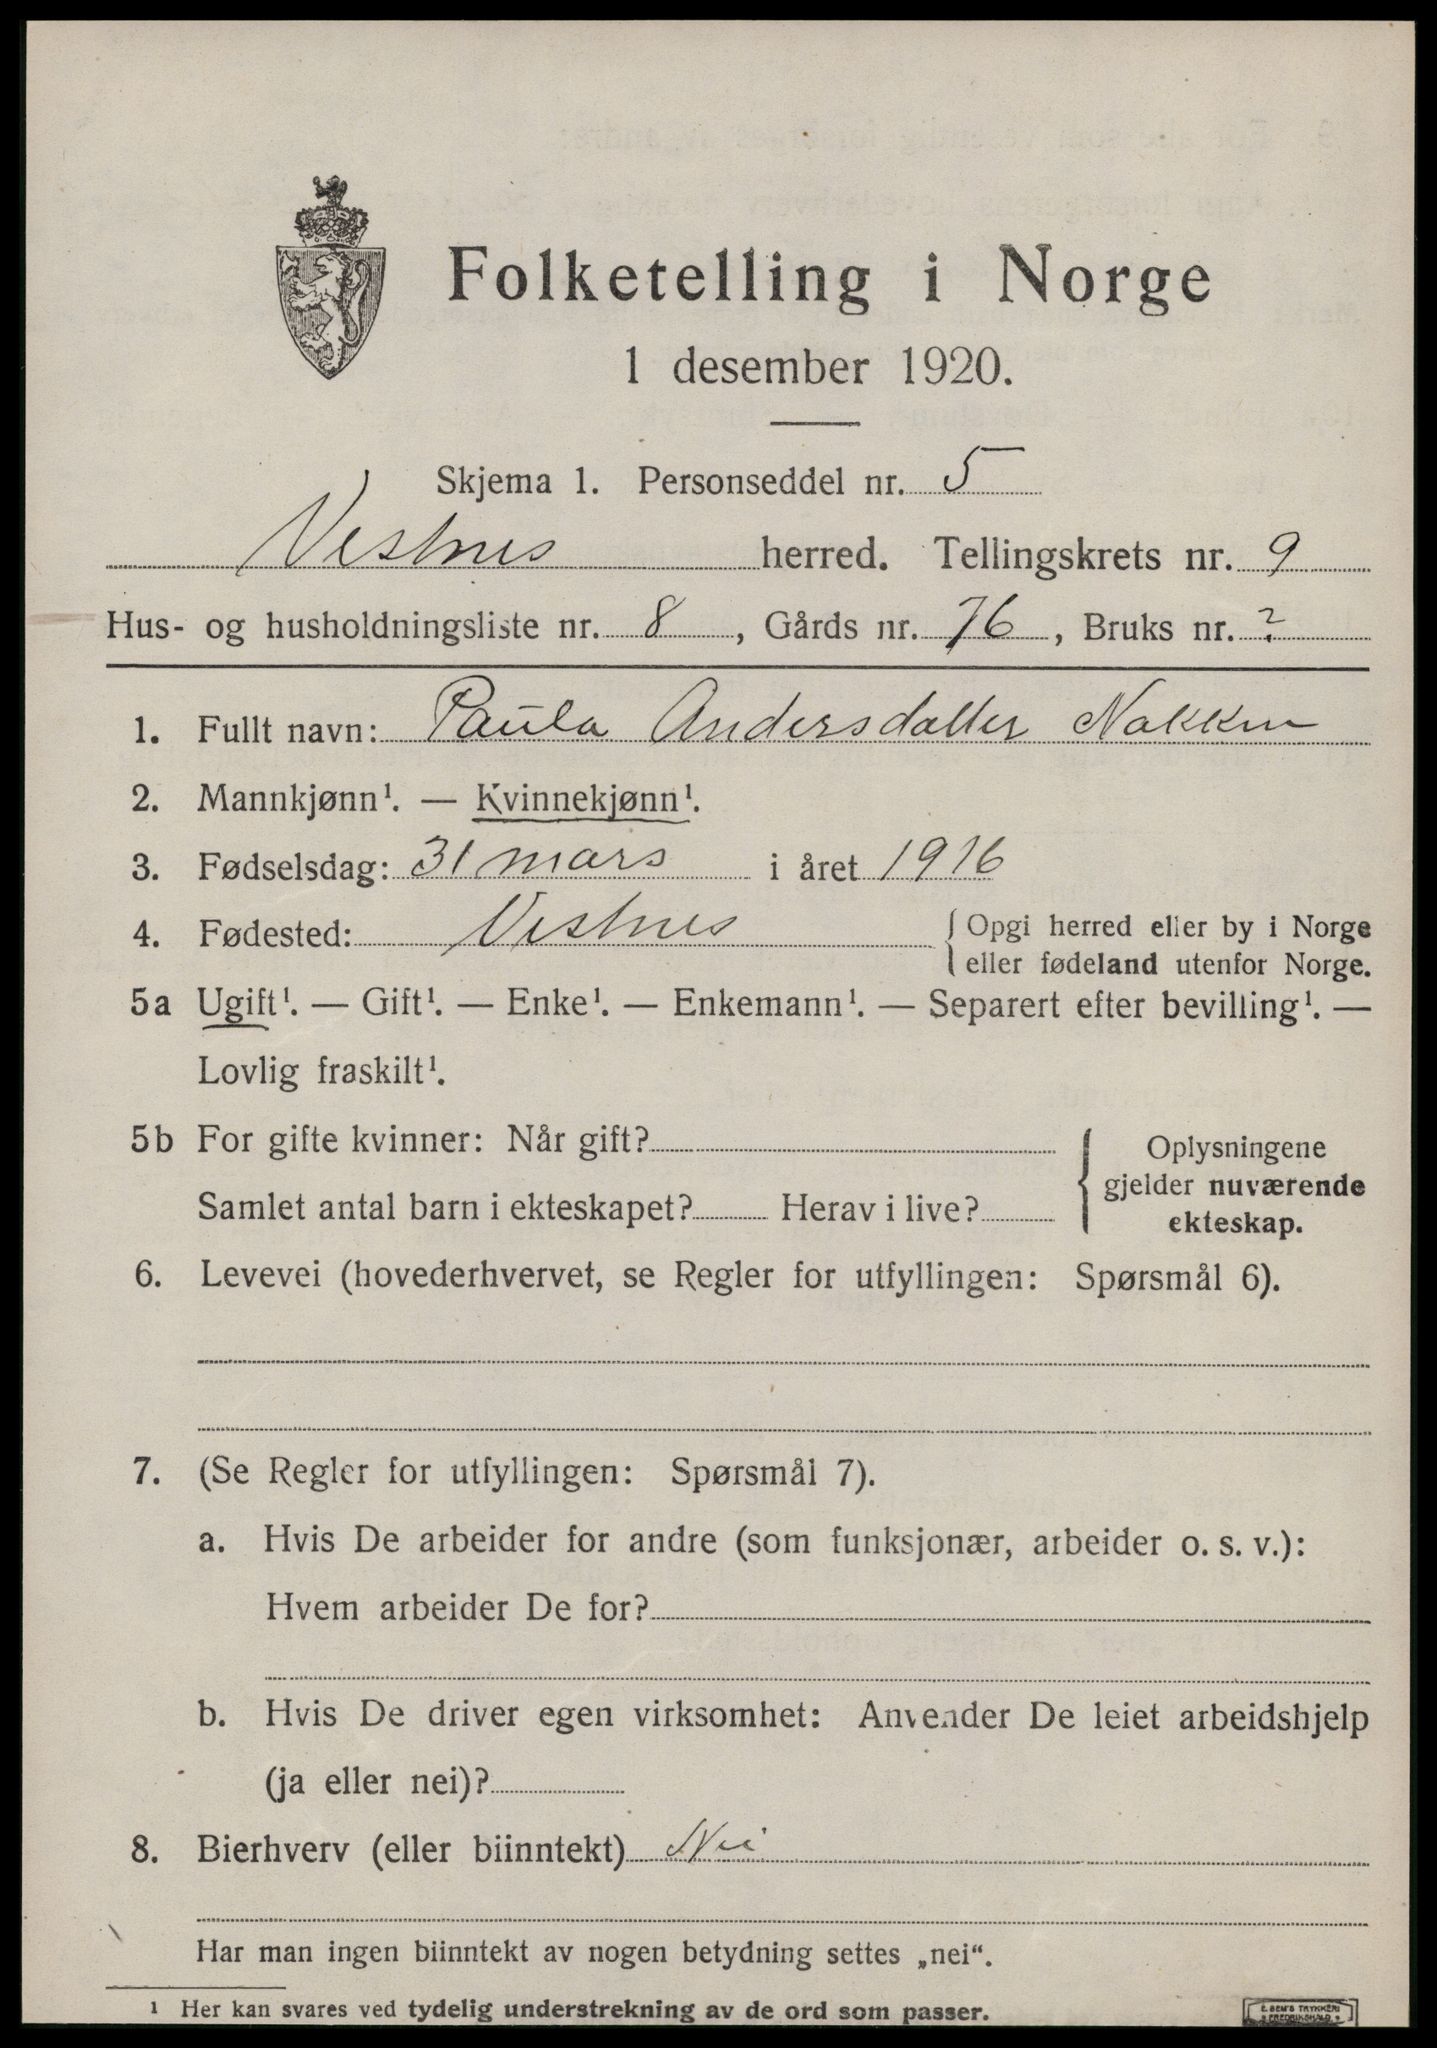 Folketelling i Norge
1 desember 1920.
Skjema 1. Personseddel nr. 5
Vestnes herred. Tellingskrets nr. 9
Hus- og husholdningsliste nr. 8, Gårds nr. 76, Bruks nr. ?
1. Fullt navn: Paula Andersdatter Nakken
2. Mannkjønn¹. — Kvinnekjønn¹.
3. Fødselsdag: 31 mars i året 1916
4. Fødested: Vestnes { Opgi herred eller by i Norge
eller fødeland utenfor Norge.
5a Ugift¹. — Gift¹. — Enke¹. — Enkemann¹. — Separert efter bevilling¹. —
Lovlig fraskilt¹.
5b For gifte kvinner: Når gift?
Samlet antal barn i ekteskapet? Herav i live?
{ Oplysningene
gjelder nuværende
ekteskap.
6. Levevei (hovederhvervet, se Regler for utfyllingen: Spørsmål 6).
7. (Se Regler for utfyllingen: Spørsmål 7).
a. Hvis De arbeider for andre (som funksjonær, arbeider o. s. v.):
Hvem arbeider De for?
b. Hvis De driver egen virksomhet: Anvender De leiet arbeidshjelp
(ja eller nei)?
8. Bierhverv (eller biinntekt) Nei
Har man ingen biinntekt av nogen betydning settes „nei“.
1 Her kan svares ved tydelig understrekning av de ord som passer.
E. SEM'S TRYKKERI
FREDRIKSHALD